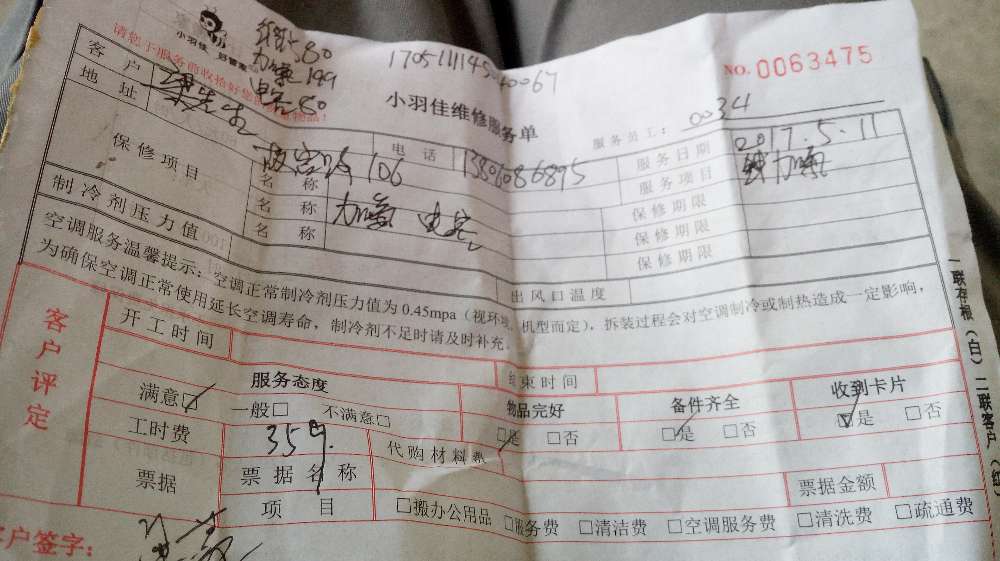 小羽佳
80
加氟199
80
170511145 40067
NO. 0063475
请您于服务前收拾好您的 物品！
小羽佳维修服务单
服务员工： 0034
客户 先生 电话 服务日期 2017.5.11
地址 106 服务项目 加氟
保修项目 名称 加氟 保修期限
名称 保修期限
名称 保修期限
制冷剂压力值 出风口温度
空调服务温馨提示：空调正常制冷剂压力值为0.45mpa（视环境、机型而定），拆装过程会对空调制冷或制热造成一定影响，
为确保空调正常使用延长空调寿命，制冷剂不足时请及时补充。
客户评定
开工时间 结束时间
服务态度 物品完好 备件齐全 收到卡片
满意□ 一般□ 不满意□ □是 □否 □是 □否 □是 □否
工时费 359 代购材料费
票据 票据名称 票据金额
项目 □搬办公用品 □服务费 □清洁费 □空调服务费 □清洗费 □疏通费
客户签字：
一联存根（白）二联客户（红